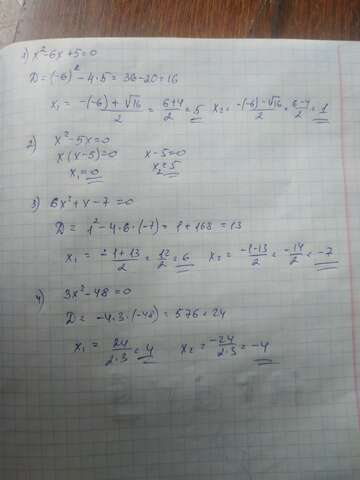 1) x²-6x+5=0
D=(-6)²-4·5=36-20=16
x₁ = -(-6)+√16/2 = 6+4/2 = 5 x₂ = -(-6)-√16/2 = 6-4/2 = 1
2) x²-5x=0
x(x-5)=0 x-5=0
x₁=0 x₂=5
3) 6x²+x-7=0
D= 1²-4·6·(-7)=1+168=13
x₁ = -1+13/2 = 12/2 = 6 x₂ = -1-13/2 = -14/2 = -7
4) 3x²-48=0
D= -4·3·(-48)=576=24
x₁ = 24/2·3 = 4 x₂ = -24/2·3 = -4